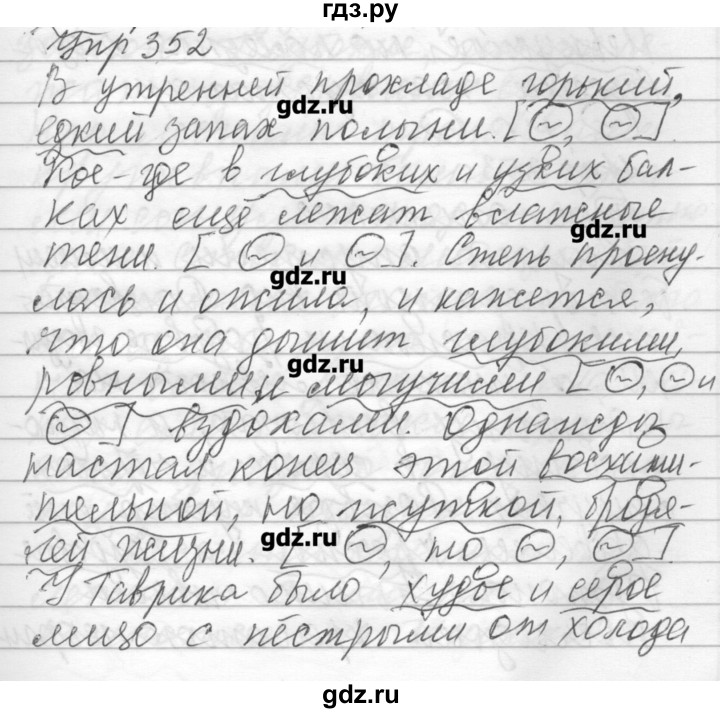 гдз.ру
Упр 352
В утренней прохладе горький,
едкий запах полыни. [~, ~].
gdz.ru
Кое-где в глубоких и узких бал-
ках ещё лежат влажные
gdz.ru
тени. [~ и ~]. Степь просну-
gdz.ru
лась и ожила, и кажется,
что она дышит глубокими,
gdz.ru
ровными и могучими [~, ~ и
~] вздохами. Однажды
настал конец этой восхити-
тельной, но жуткой, бродя-
gdz.ru
чей жизни. [~, но ~, ~]
У Таврика было худое и серое
лицо с пёстрыми от холода
gdz.ru